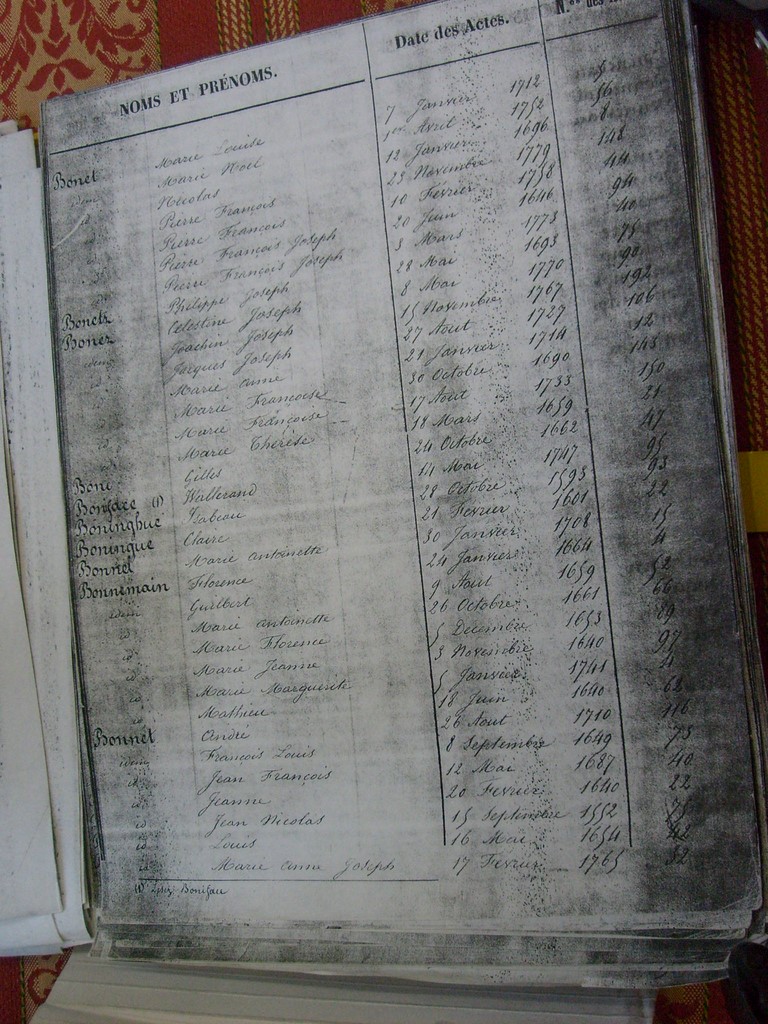 NOMS ET PRÉNOMS. Date des Actes. N.os des
Bonet Marie Louise 7 Janvier 1712 5
idem Marie Noel 1er Avril 1752 56
id Nicolas 12 Janvier 1696 8
id Pierre François 23 Novembre 1779 148
id Pierre François 10 Février 1758 44
id Pierre François Joseph 20 Juin 1646 94
id Pierre François Joseph 3 Mars 1773 40
Bonetz Philippe Joseph 28 Mai 1693 75
Bonez Celestine Joseph 8 Mai 1770 90
idem Joachin Joseph 15 Novembre 1767 192
id Jacques Joseph 27 Aout 1727 106
id Marie Anne 21 Janvier 1714 12
id Marie Françoise 30 Octobre 1690 143
id Marie Françoise 17 Aout 1733 150
id Marie Thérèse 18 Mars 1659 21
Boni Gilles 24 Octobre 1662 47
Boniface (1) Wallerand 14 Mai 1747 95
Boninghue Isabeau 28 Octobre 1593 93
Boningue Claire 21 Fevrier 1601 22
Bonnel Marie Antoinette 30 Janvier 1708 15
Bonnemain Florence 24 Janvier 1664 4
idem Guilbert 9 Aout 1659 52
id Marie Antoinette 26 Octobre 1661 66
id Marie Florence 5 Decembre 1653 89
id Marie Jeanne 3 Novembre 1640 97
id Marie Marguerite 5 Janvier 1741 4
id Mathieu 18 Juin 1640 62
Bonnet André 26 Aout 1710 116
idem François Louis 8 Septembre 1649 73
id Jean François 12 Mai 1687 40
id Jeanne 20 Fevrier 1640 22
id Jean Nicolas 15 Septembre 1552 75
id Louis 16 Mai 1654 42
id Marie Anne Joseph 17 Fevrier 1765 32
(1) Bonifau